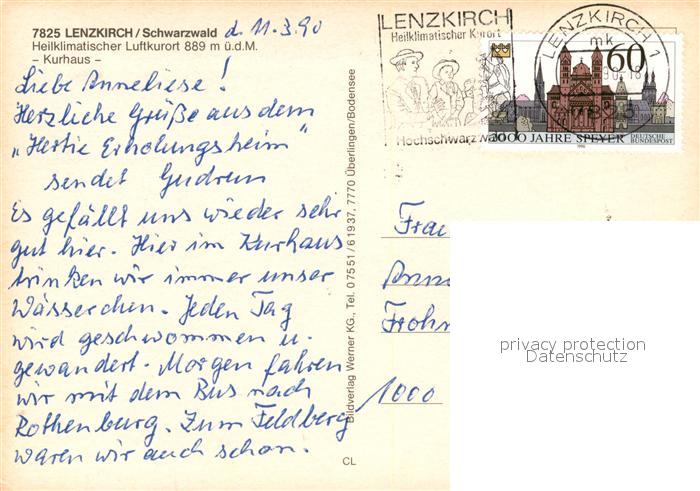 7825 LENZKIRCH/Schwarzwald d. 11.3.90
Heilklimatischer Luftkurort 889 m ü.d.M.
– Kurhaus –
Liebe Anneliese!
Herzliche Grüße aus dem
„Hertie Erholungsheim"
sendet Gudrun
Es gefällt uns wieder sehr
gut hier. Hier im Kurhaus
trinken wir immer unser
Wässerchen. Jeden Tag
wird geschwommen u.
gewandert. Morgen fahren
wir mit dem Bus nach
Rothenburg. Zum Feldberg
waren wir auch schon.
Bildverlag Werner KG., Tel. 07551/61937, 7770 Überlingen/Bodensee
CL
LENZKIRCH
Heilklimatischer Kurort
Hochschwarzwald
LENZKIRCH 1
mk
60
2000 JAHRE SPEYER
DEUTSCHE
BUNDESPOST
1990
Frau
Anne
Frohn
1000
privacy protection
Datenschutz